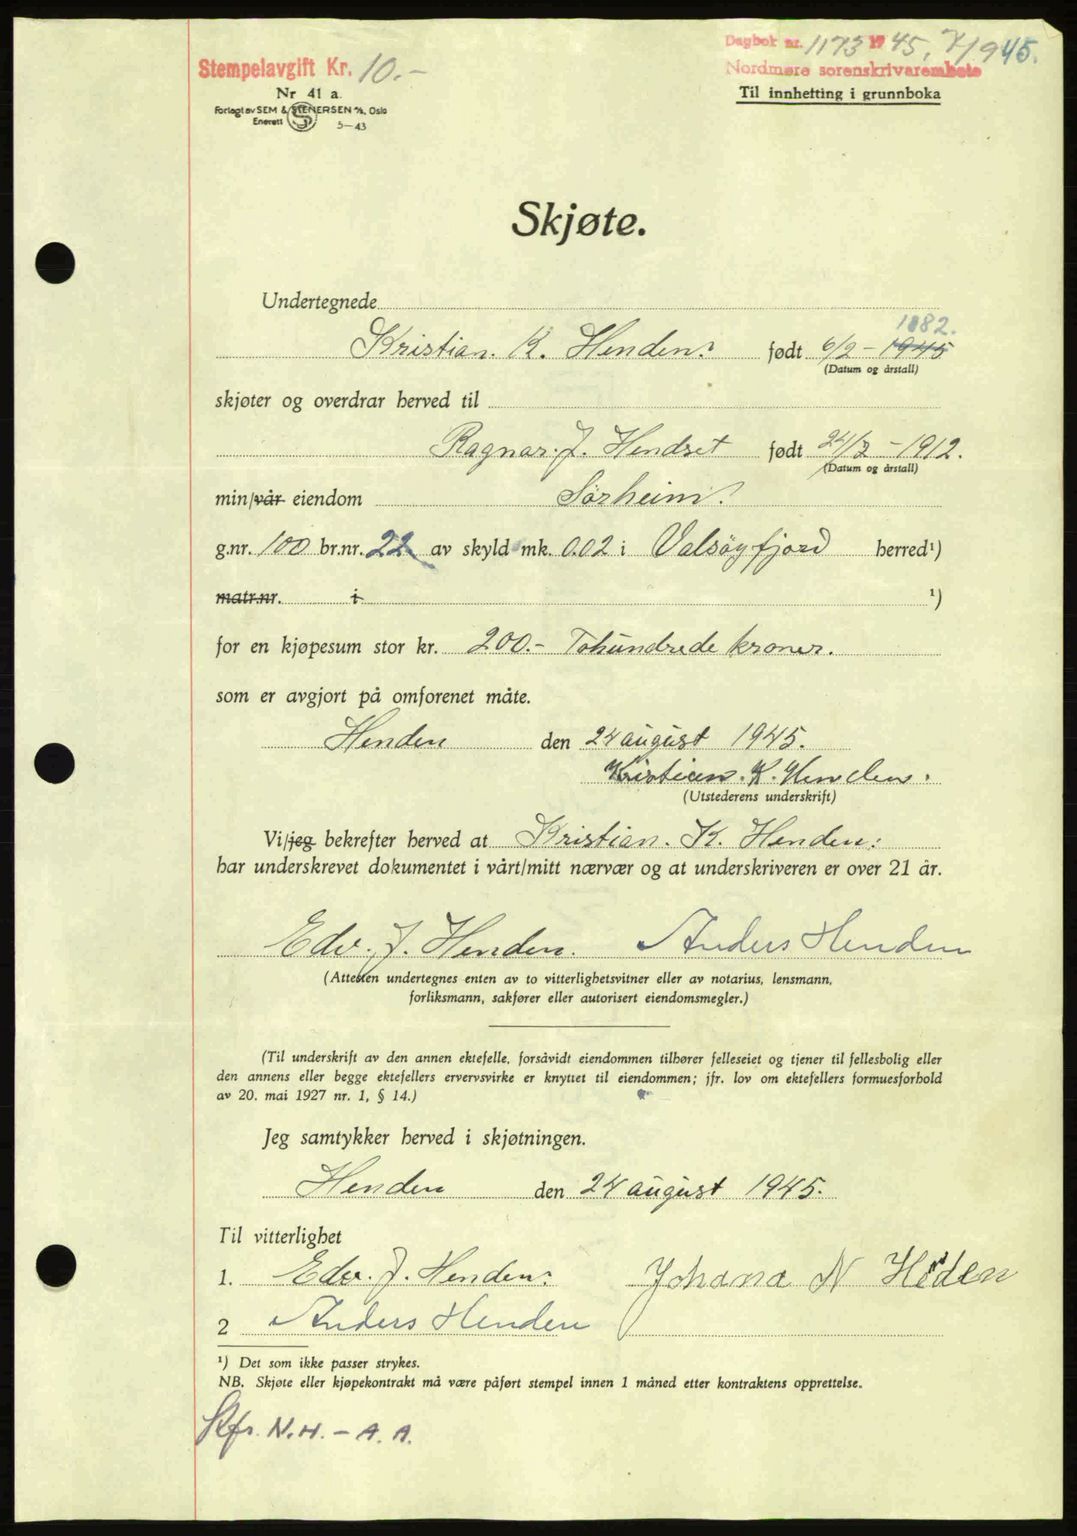 Stempelavgift Kr. 10.-
Nr 41 a.
Forlagt av SEM & STENERSEN A/S, Oslo
Enerett 5-43
Dagbok nr. 1173 1945, 7/9 45.
Nordmøre sorenskriverembete
Til innhefting i grunnboka
Skjøte.
Undertegnede
1882.
Kristian. K. Henden: født 6/2 - 1945
(Datum og årstall)
skjøter og overdrar herved til
Ragnar. J. Hendset født 24/3 - 1912.
(Datum og årstall)
min/vår eiendom Sørheim.
g.nr. 100 br.nr. 22 av skyld mk. 0.02 i Valsøyfjord herred¹)
matr.nr. i ¹)
for en kjøpesum stor kr. 200.- Tohundrede kroner.
som er avgjort på omforenet måte.
Henden den 24 august 1945.
Kristian. K. Henden.
(Utstederens underskrift)
Vi/jeg bekrefter herved at Kristian. K. Henden:
har underskrevet dokumentet i vårt/mitt nærvær og at underskriveren er over 21 år.
Edv. J. Henden. Anders Henden
(Attesten undertegnes enten av to vitterlighetsvitner eller av notarius, lensmann,
forliksmann, sakfører eller autorisert eiendomsmegler.)
(Til underskrift av den annen ektefelle, forsåvidt eiendommen tilhører felleseiet og tjener til fellesbolig eller
den annens eller begge ektefellers ervervsvirke er knyttet til eiendommen; jfr. lov om ektefellers formuesforhold
av 20. mai 1927 nr. 1, § 14.)
Jeg samtykker herved i skjøtningen.
Henden den 24 august 1945.
Til vitterlighet
1. Edv. J. Henden: Johana N Henden
2 Anders Henden
¹) Det som ikke passer strykes.
NB. Skjøte eller kjøpekontrakt må være påført stempel innen 1 måned etter kontraktens opprettelse.
N.H. - A.A.